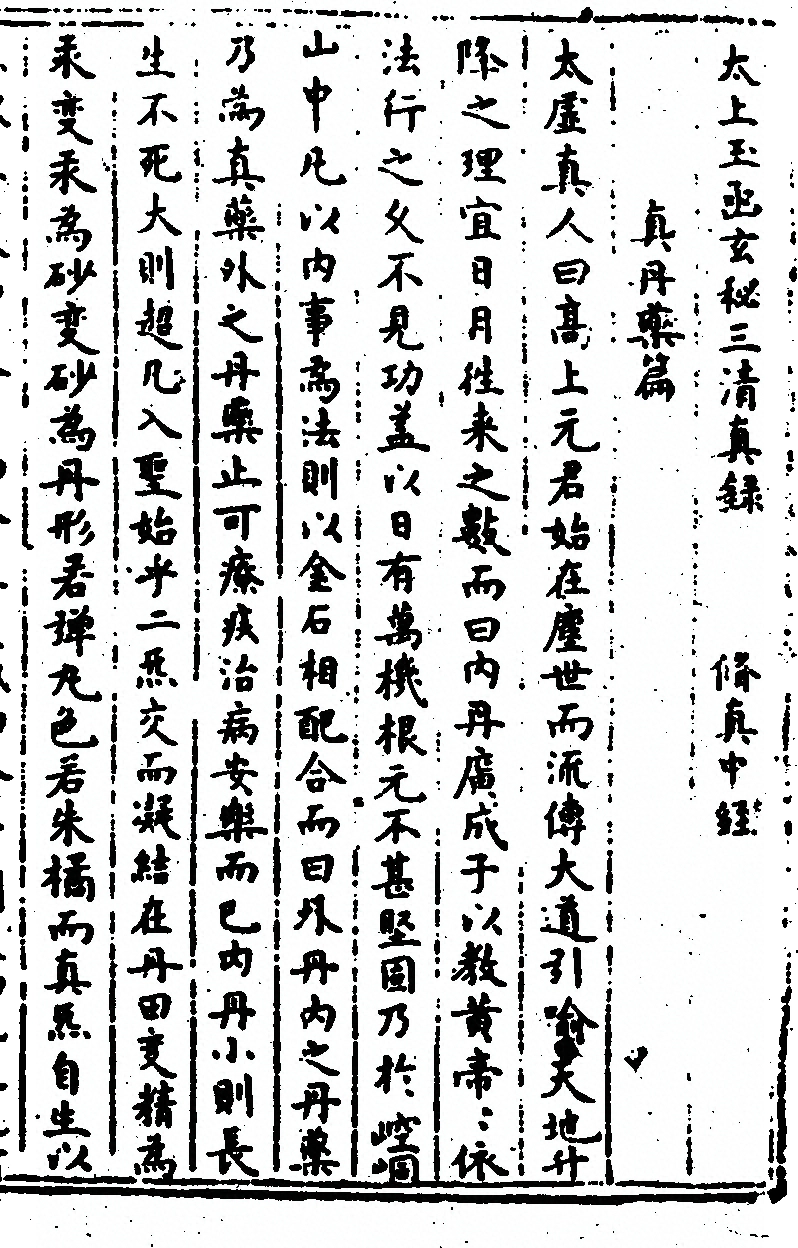 太上玉函玄秘三清真録 脩真中經
真丹藥篇
太虛真人曰高上元君始在塵世而流傳大道引喻天地升
降之理宜日月徃来之數而曰内丹廣成子以教黄帝〻依
法行之久不見功盖以日有萬機根元不甚堅固乃於崆峒
山中凡以内事為法則以金石相配合而曰外丹内之丹藥
乃為真藥外之丹藥止可療疾治病安樂而已内丹小則長
生不死大則超凡入聖始乎二炁交而凝結在丹田变精為
汞变汞為砂变砂為丹形若弹丸色若朱橘而真炁自生以